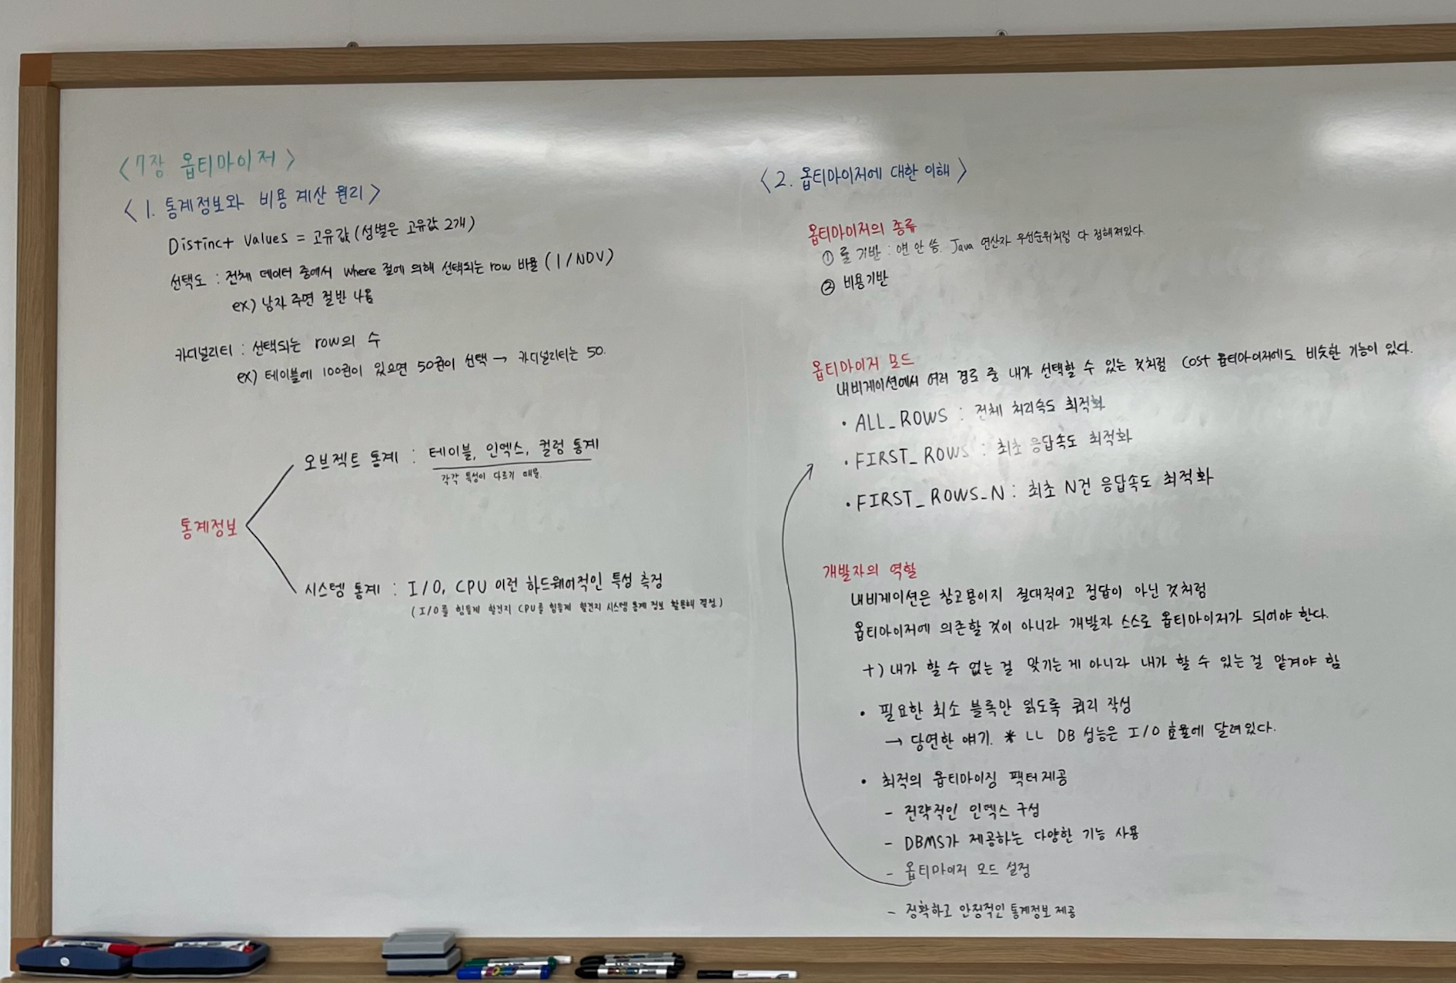 <7장 옵티마이저>
<1. 통계정보와 비용 계산 원리>
Distinct Values = 고유값 (성별은 고유값 2개)
선택도 : 전체 데이터 중에서 where 절에 의해 선택되는 row 비율 (1/NDV)
ex) 남자 주면 절반 나옴
카디널리티 : 선택되는 row의 수
ex) 테이블에 100권이 있으면 50권이 선택 → 카디널리티는 50.
통계정보
오브젝트 통계 : 테이블, 인덱스, 컬럼 통계
각각 특성이 다르기 때문.
시스템 통계 : I/O, CPU 이런 하드웨어적인 특성 측정
(I/O를 힘들게 할건지 CPU를 힘들게 할건지 시스템 통계 정보 활용해 결정)
<2. 옵티마이저에 대한 이해>
옵티마이저의 종류
① 룰 기반 : 얜 안 씀. Java 연산자 우선순위처럼 다 정해져있다.
② 비용기반
옵티마이저 모드
내비게이션에서 여러 경로 중 내가 선택할 수 있는 것처럼 cost 옵티마이저에도 비슷한 기능이 있다.
• ALL_ROWS : 전체 처리속도 최적화
• FIRST_ROWS : 최초 응답속도 최적화
• FIRST_ROWS_N : 최초 N건 응답속도 최적화
개발자의 역할
내비게이션은 참고용이지 절대적이고 정답이 아닌 것처럼
옵티마이저에 의존할 것이 아니라 개발자 스스로 옵티마이저가 되어야 한다.
+) 내가 할 수 없는 걸 맞기는 게 아니라 내가 할 수 있는 걸 맡겨야 함
• 필요한 최소 블록만 읽도록 쿼리 작성
→ 당연한 얘기. * LL DB 성능은 I/O 효율에 달려있다.
• 최적의 옵티마이징 팩터 제공
- 전략적인 인덱스 구성
- DBMS가 제공하는 다양한 기능 사용
- 옵티마이저 모드 설정
- 정확하고 안정적인 통계정보 제공